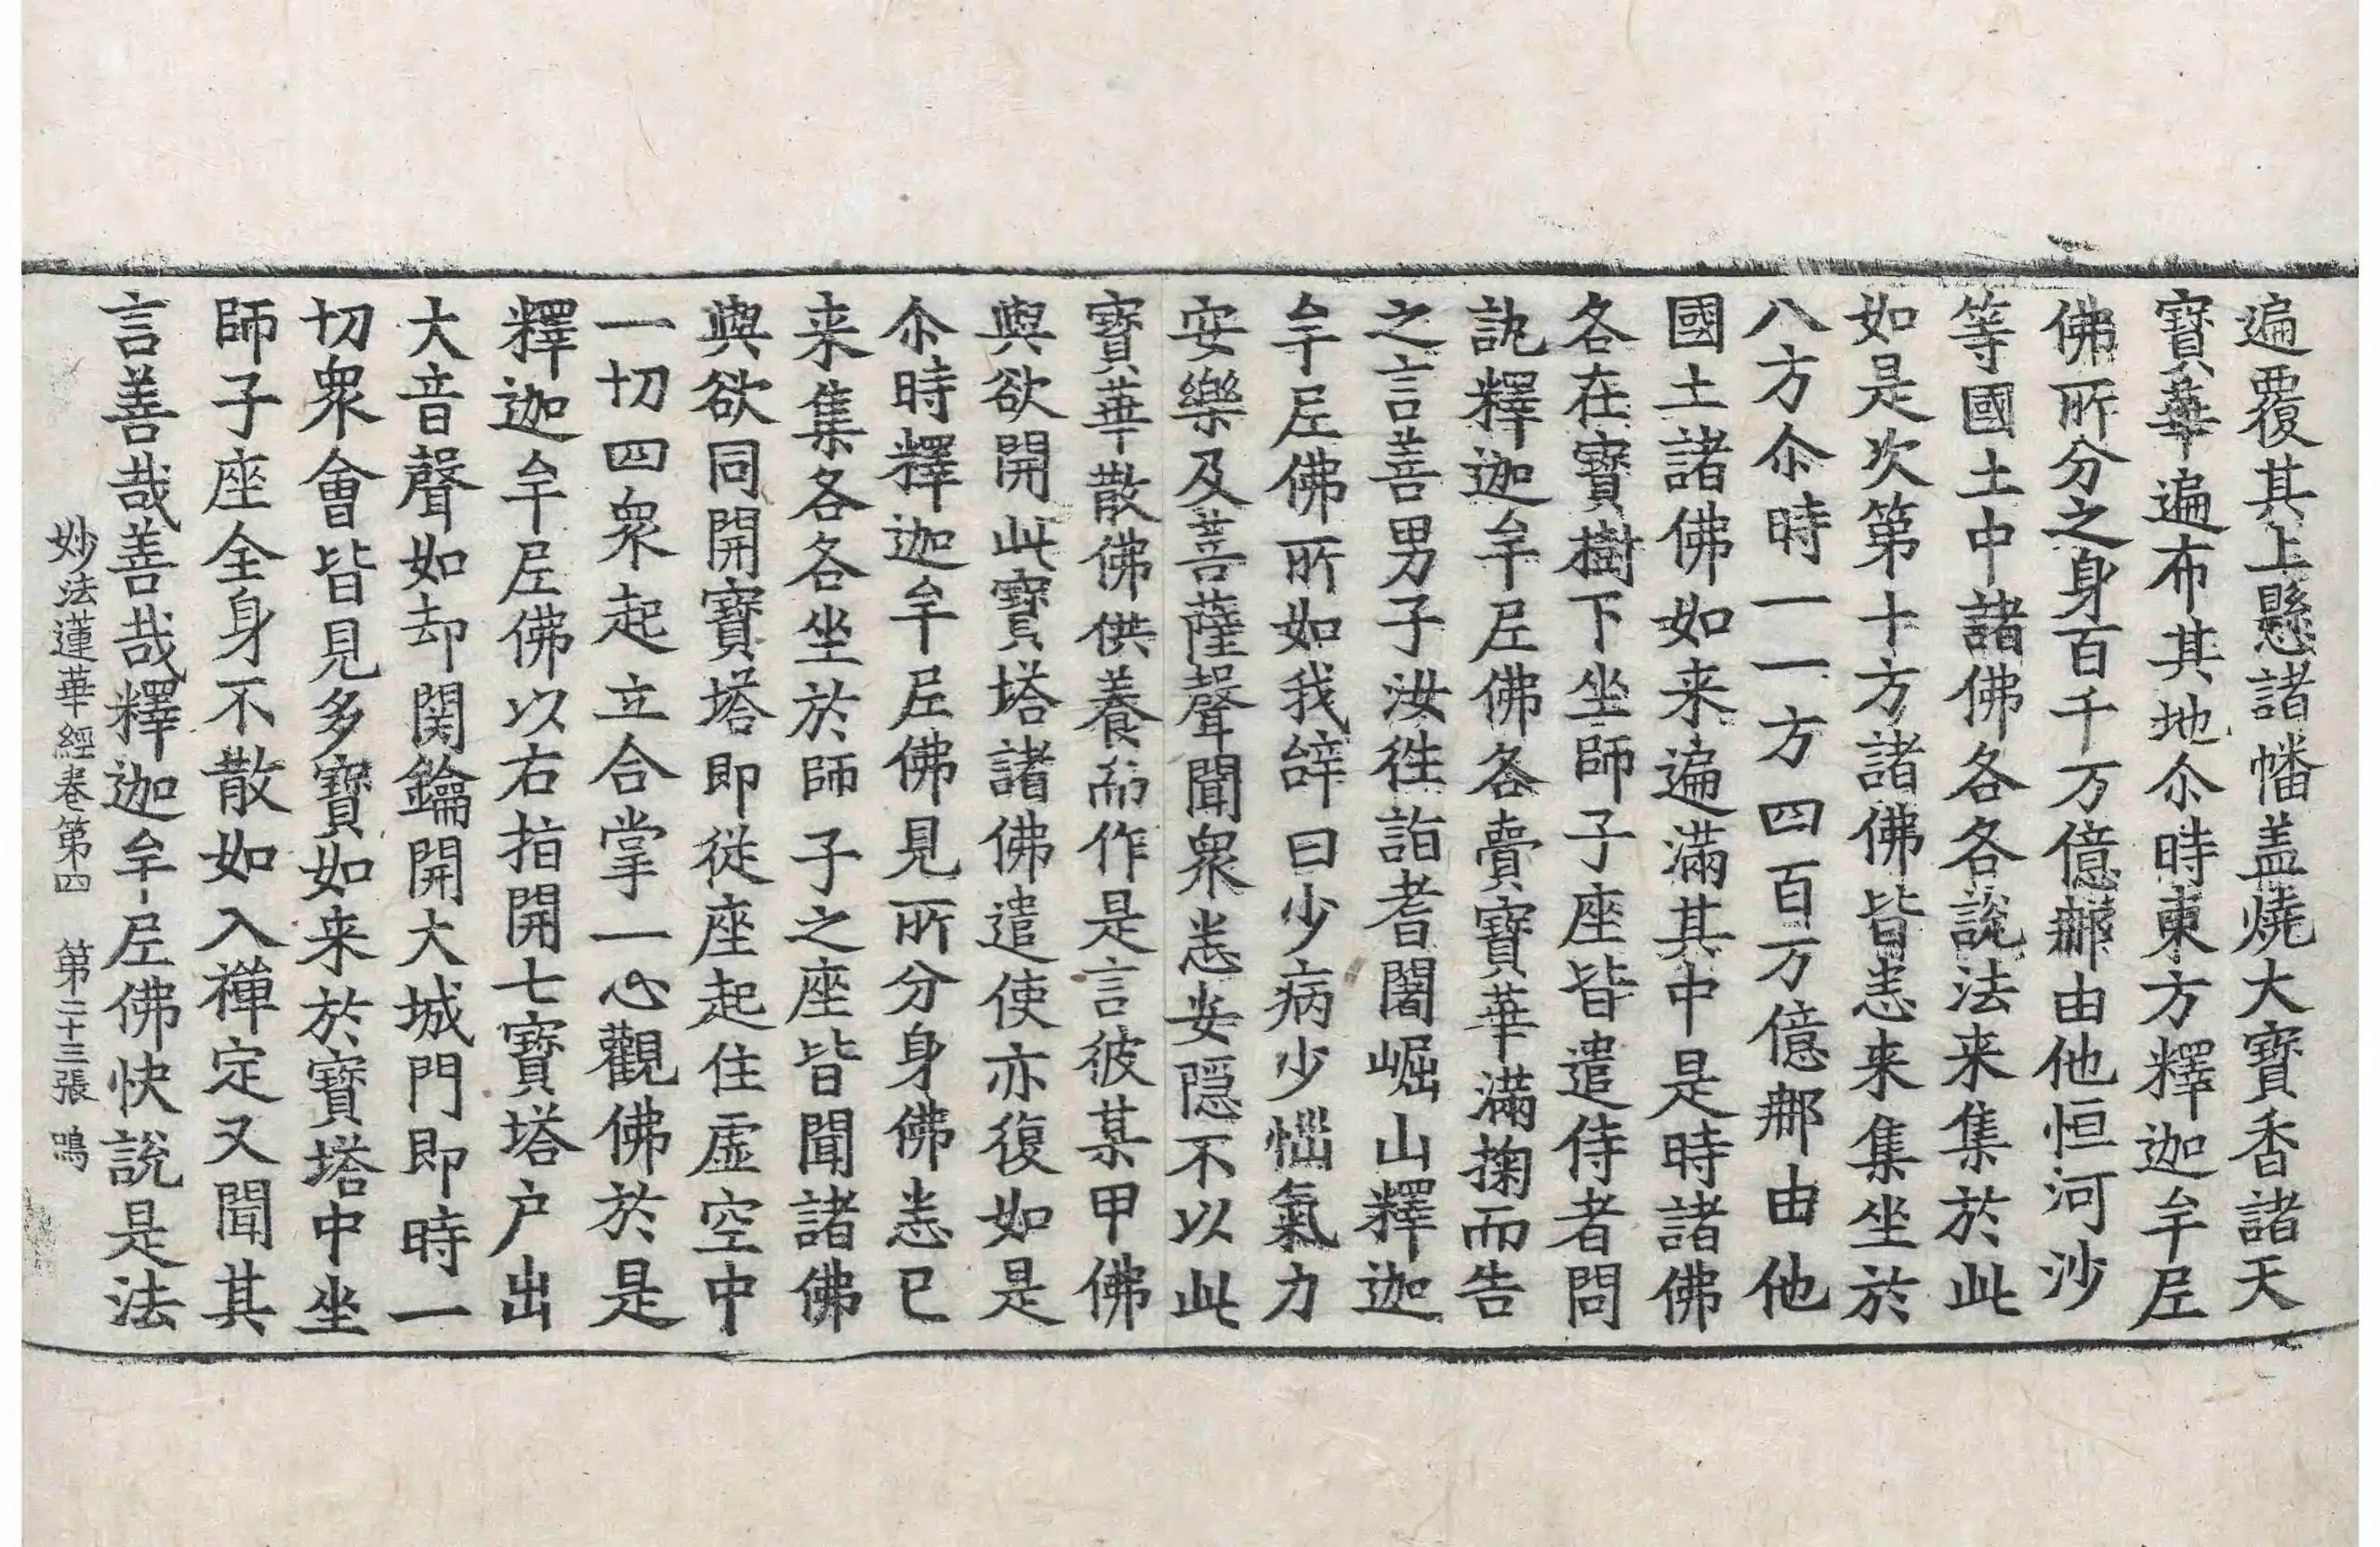 遍覆其上懸諸幡盖燒大寶香諸天
寶華遍布其地尒時東方釋迦牟尼
佛所分之身百千万億那由他恒河沙
等國土中諸佛各各說法来集於此
如是次第十方諸佛皆悉来集坐於
八方尒時一一方四百万億那由他
國土諸佛如来遍滿其中是時諸佛
各在寶樹下坐師子座皆遣侍者問
訊釋迦牟尼佛各賷寶華滿掬而告
之言善男子汝往詣耆闍崛山釋迦
牟尼佛所如我辝曰少病少惱氣力
安樂及菩薩聲聞衆悉安隱不以此
寶華散佛供養而作是言彼某甲佛
與欲開此寶塔諸佛遣使亦復如是
尒時釋迦牟尼佛見所分身佛悉已
来集各各坐於師子之座皆聞諸佛
與欲同開寶塔即從座起住虛空中
一切四衆起立合掌一心觀佛於是
釋迦牟尼佛以右指開七寶塔户出
大音聲如却関鑰開大城門即時一
切衆會皆見多寶如来於寶塔中坐
師子座全身不散如入禪定又聞其
言善哉善哉釋迦牟尼佛快說是法
妙法蓮華經卷第四 第二十三張 鳴